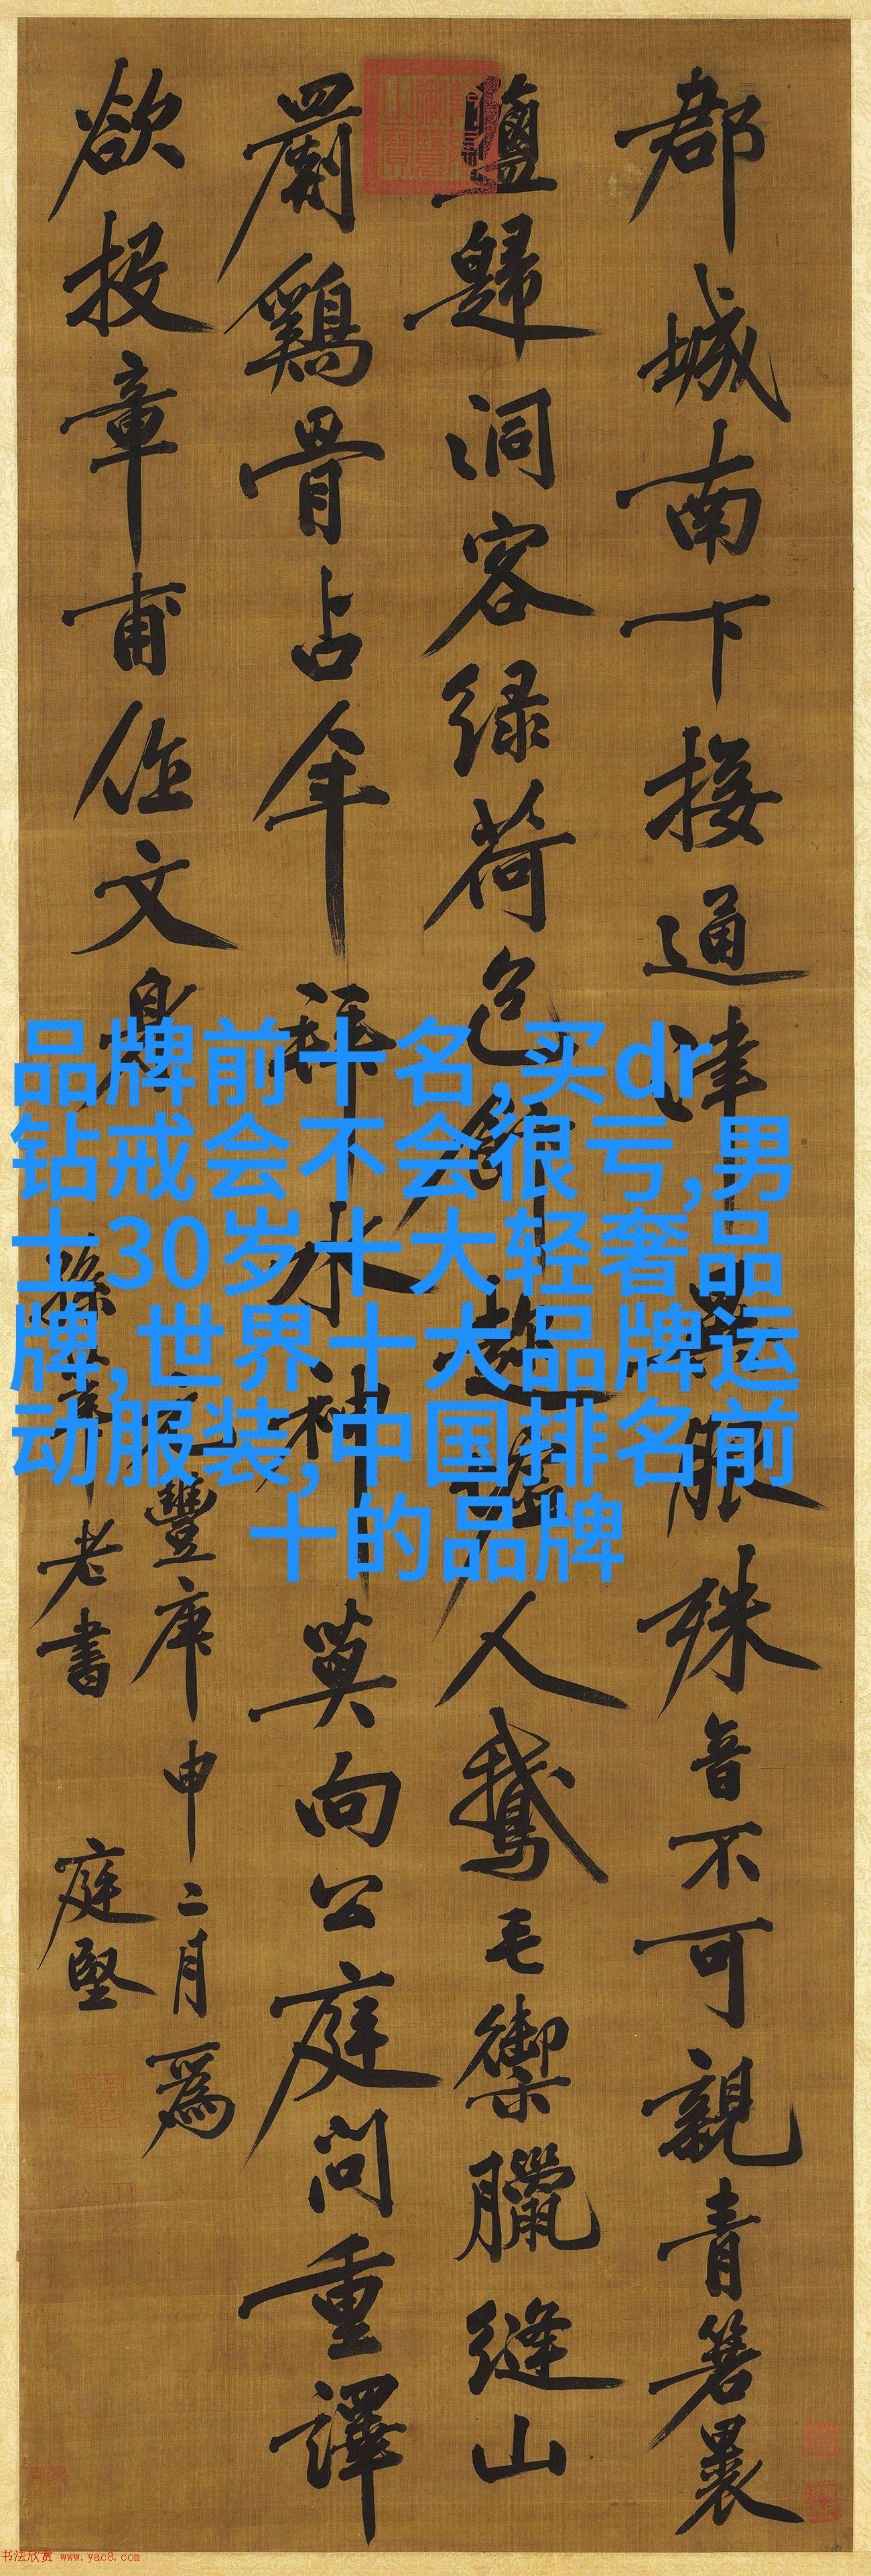 郡城南下接通津異服殊音不可親青箬裹
鹽歸洞客綠荷包飯趁虛人鵝毛御臘縫山
罽鷄骨占年拜水神莫向公庭問重譯
欲投章甫作文身
元豐庚申二月為
孫莘老書 庭堅
品牌前十名,买dr
钻戒会不会很亏,男
士30岁十大轻奢品
牌,世界十大品牌运
动服装,中国排名前
十的品牌
书法欣赏 www.yac8.com